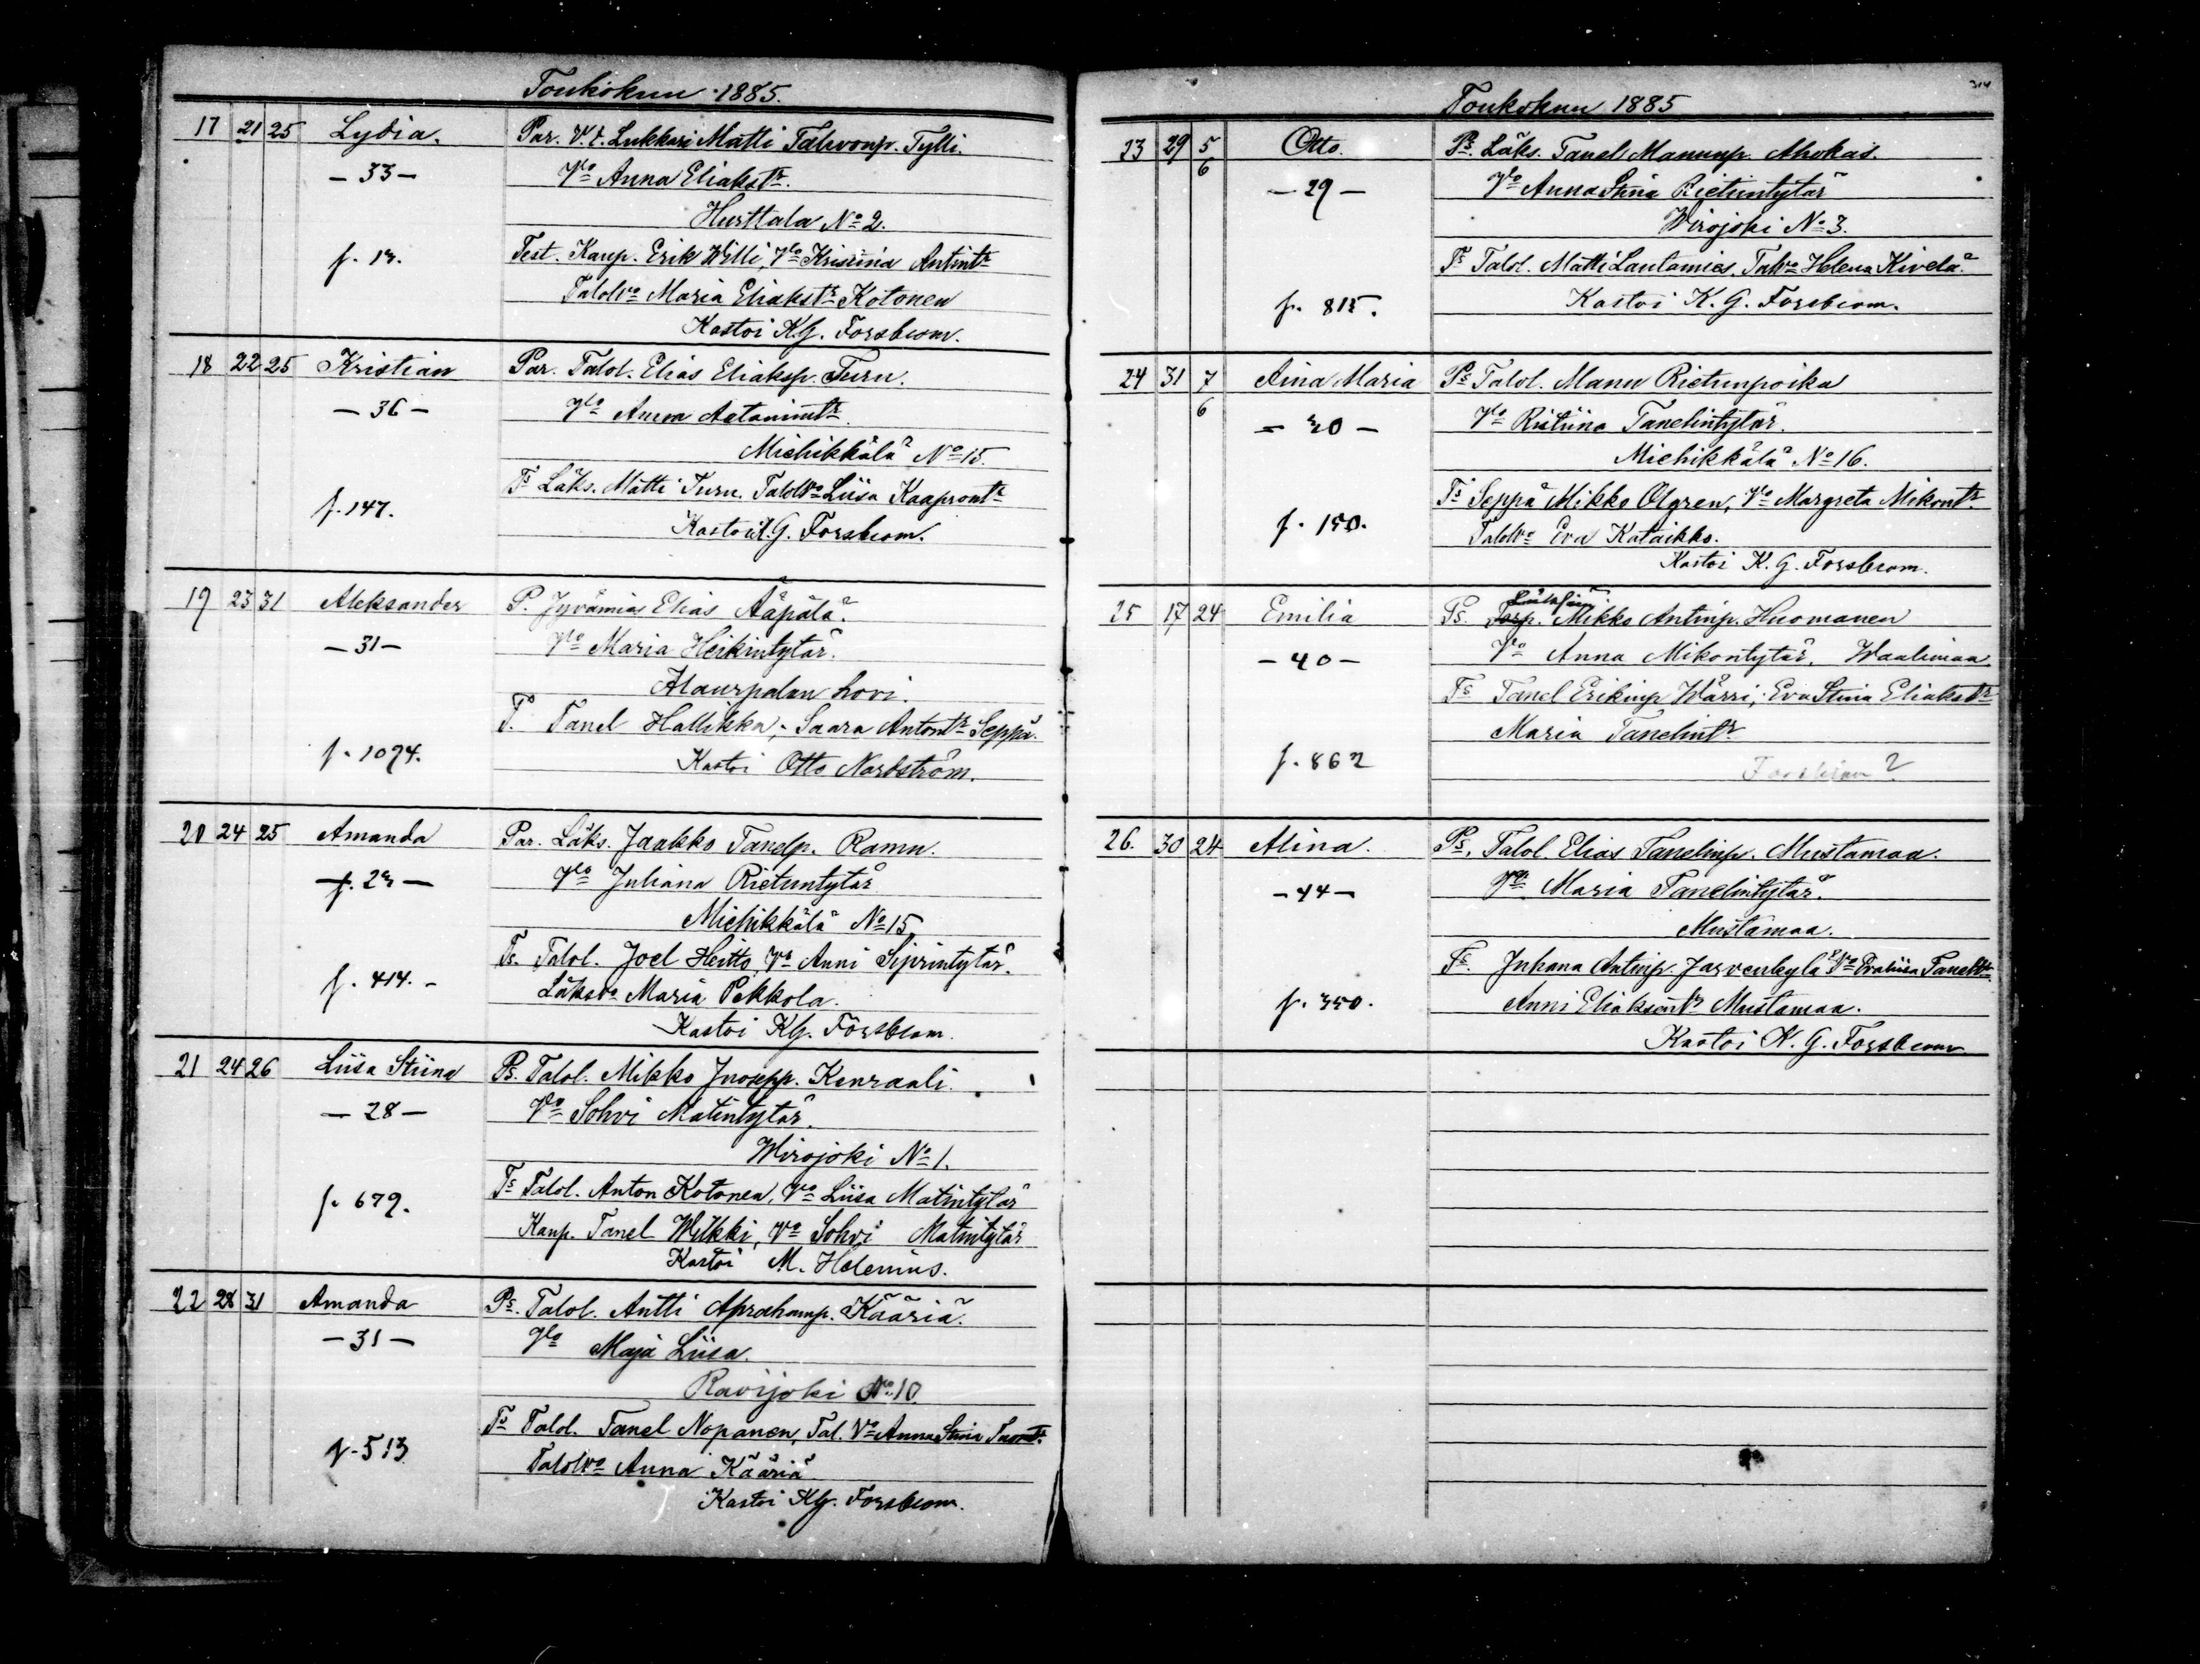 Toukokuu 1885.
17 21 25 Lydia. Par. V. t. Lukkari Matti Tahvonp. Tylli.
— 33 — Vmo Anna Eliakstr.
Hurttala No 2.
f. 13. Test. Kaup. Erik Willi, Vmo Kristina Antintr
Talolvo Maria Eliakstr Kotonen
Kastoi K.G. Forsbcom.
18 22 25 Kristian Par. Talol. Elias Eliaksp. Turu.
— 36 — Vmo Anna Aatamintr.
Miehikkälä No 15.
f. 147. Ts Läks. Matti Turu. Talolvo Liisa Kaaprontr
Kastoi K.G. Forsbcom.
19 23 31 Aleksander P. Jyvämies Elias Ääpälä.
— 31 — Vmo Maria Heikintytär.
Alaurpalan hovi.
T. Tanel Hallikka; Saara Antontr Seppä.
f. 1074. Kastoi Otto Nordström.
20 24 25 Amanda Par. Läks. Jaakko Tanelp. Ramu.
f. 23 — Vmo Juliana Rietuntytär
Miehikkälä No 15.
Ts. Talol. Joel Heitto, Vo Anni Siprintytär.
f. 414. - Läksvo Maria Pekkola.
Kastoi K.G. Forsbcom.
21 24 26 Liisa Stiina Ps. Talol. Mikko Juosepp. Kenraali.
— 28 — Vo Sohvi Matintytär.
Wirojoki No 1.
Ts Talol. Anton Kotonen, Vo Liisa Matintytär
f. 679. Kaup. Tanel Wilkki, Vo Sohvi Matintytär
Kastoi M. Helenius.
22 28 31 Amanda Ps. Talol. Antti Aprahamp. Kääriä.
— 31 — Vmo Maja Liisa.
Ravijoki No 10.
Ts Talol. Tanel Nopanen, Tal. Vo Anna Stina
f. 513 Talolvo Anna Kääriä
Kastoi K.G. Forsbcom.
314
Toukokuu 1885
23 29 5 Otto. Ps. Läks. Tanel Manunp. Ahokas.
6
— 29 — Vmo Anna Stina Rietuntytär
Wirojoki No 3.
Ts Talol. Matti Lautamies, Talvo Helena Kivelä.
f. 815. Kastoi K. G. Forsbcom.
24 31 7 Aina Maria Ps Talol. Manu Rietunpoika
6
— 30 — Vo Ristiina Tanelintytär.
Miehikkälä No 16.
Ts Seppä Mikko Olgren, Vmo Margreta Mikontr.
f. 150. Talolvo Eva Kataikko.
Kastoi K. G. Forsbcom.
25 17 24 Emilia Ps. Torp. Mikko Antinp. Huomanen
— 40 — Vo Anna Mikontytär. Waalimaa
Ts Tanel Erikinp Wärri; Eva Stina Eliakstr
Maria Tanelintr
f. 862 Forsblom?
26. 30 24 Alina. Ps. Talol. Elias Tanelinp. Mustamaa.
— 44 — Vo. Maria Tanelintytär.
Mustamaa.
Ts. Juhana Antinp. Jarvenkylä Vo Evaliisa Taneltr
f. 350. Anni Eliaksentr Mustamaa.
Kastoi K. G. Forsbcom